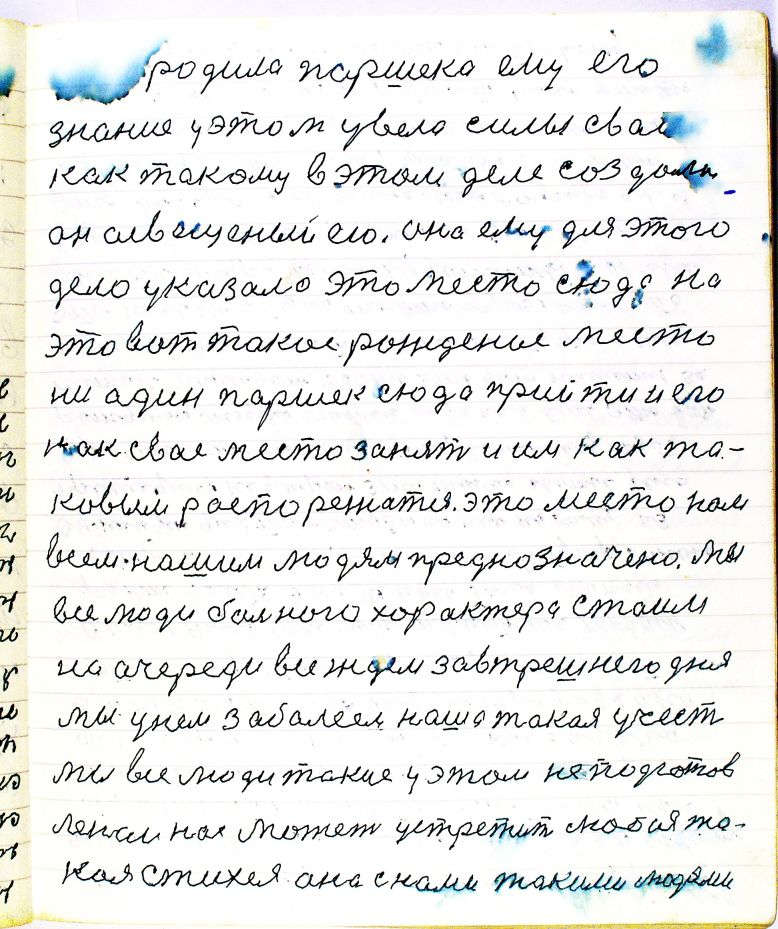 родила паршека ему его
знание у этом увела силы свай
как такому в этом деле создали
он алвещеный его. она ему для этого
дело указала это место сюда на
это вот такое рождение место
ни адин паршек сюда прийти и его
как свае место занят и им как та-
ковым распорежатся. это место нам
всем нашим людям преднозначено. мы
все люди болного характера стаим
на очереди все ждем завтрешнего дня
мы у нем забалеем наша такая учест
мы все люди такие у этом неподготов
лены нас может устретит любая та-
кая стихея она с нами такими людями